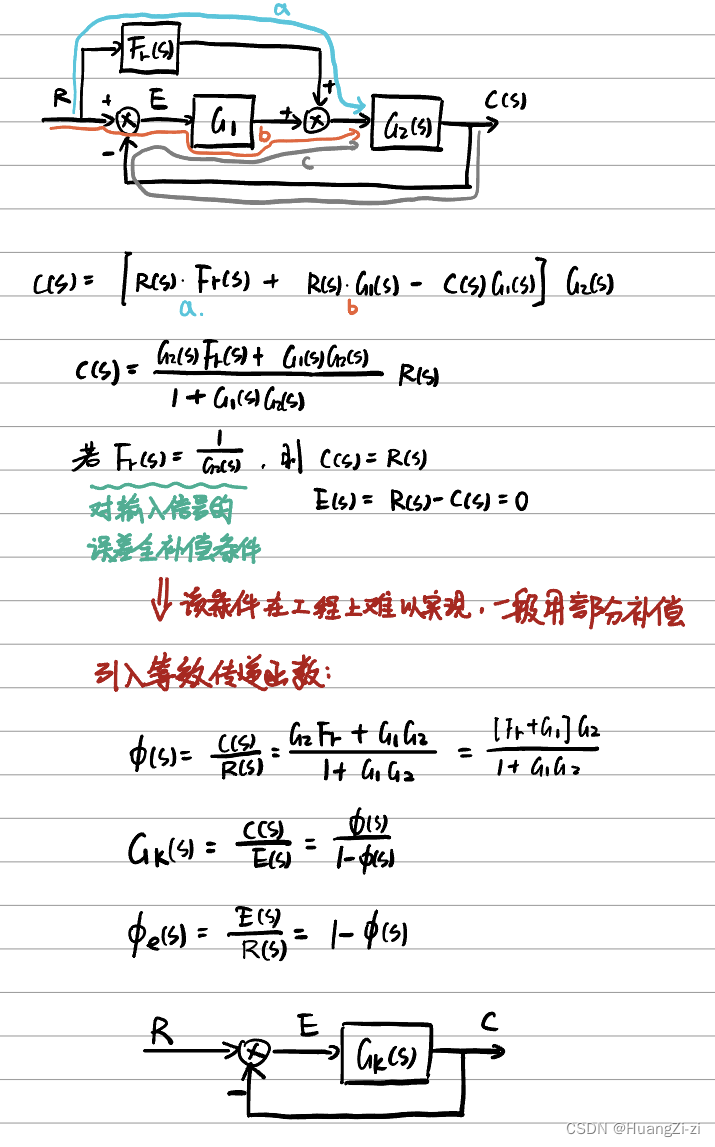 a
Fr(s)
R + E G1 + + G2(s) C(s)
- b
c
C(s) = [R(s)·Fr(s) + R(s)·G1(s) - C(s)G1(s)] G2(s)
a. b
C(s) = \frac{G2(s)Fr(s) + G1(s)G2(s)}{1 + G1(s)G2(s)} R(s)
若 Fr(s) = \frac{1}{G2(s)}, 则 C(s) = R(s)
对输入信号的 E(s) = R(s) - C(s) = 0
误差全补偿条件
⇓ 该条件在工程上难以实现,一般用部分补偿
引入等效传递函数:
ϕ(s) = \frac{C(s)}{R(s)} = \frac{G2Fr + G1G2}{1 + G1G2} = \frac{[Fr+G1]G2}{1 + G1G2}
Gk(s) = \frac{C(s)}{E(s)} = \frac{ϕ(s)}{1-ϕ(s)}
ϕe(s) = \frac{E(s)}{R(s)} = 1 - ϕ(s)
R E Gk(s) C
-
CSDN @HuangZi-zi